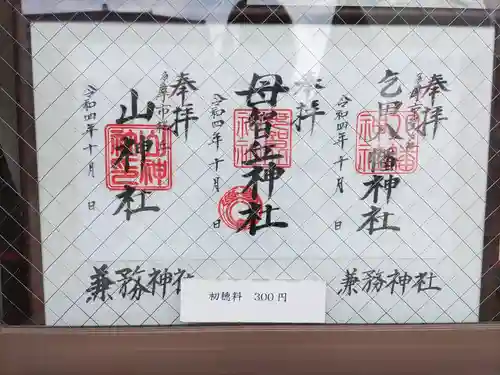 奉拝
乞田八幡神社
令和四年十月 日
奉拝
母智丘神社
令和四年 十月 日
奉拝
山神社
令和四年十月 日
兼務神社
兼務神社
初穂料 300円